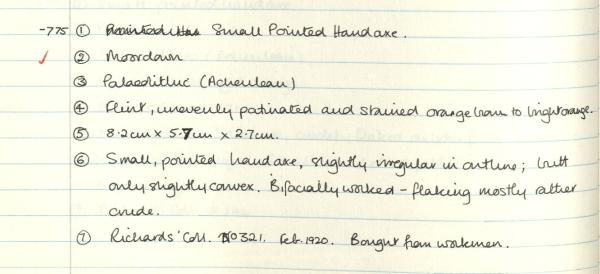 -775 ① Small Pointed Handaxe.
✓ ② Moordown
③ Palaeolithic (Acheulean)
④ Flint, unevenly patinated and stained orange brown to bright orange.
⑤ 8.2cm x 5.7cm x 2.7cm.
⑥ Small, pointed handaxe, slightly irregular in outline; butt
only slightly convex. Bifacially worked - flaking mostly rather
crude.
⑦ Richards' Coll. No 321. Feb. 1920. Bought from workmen.